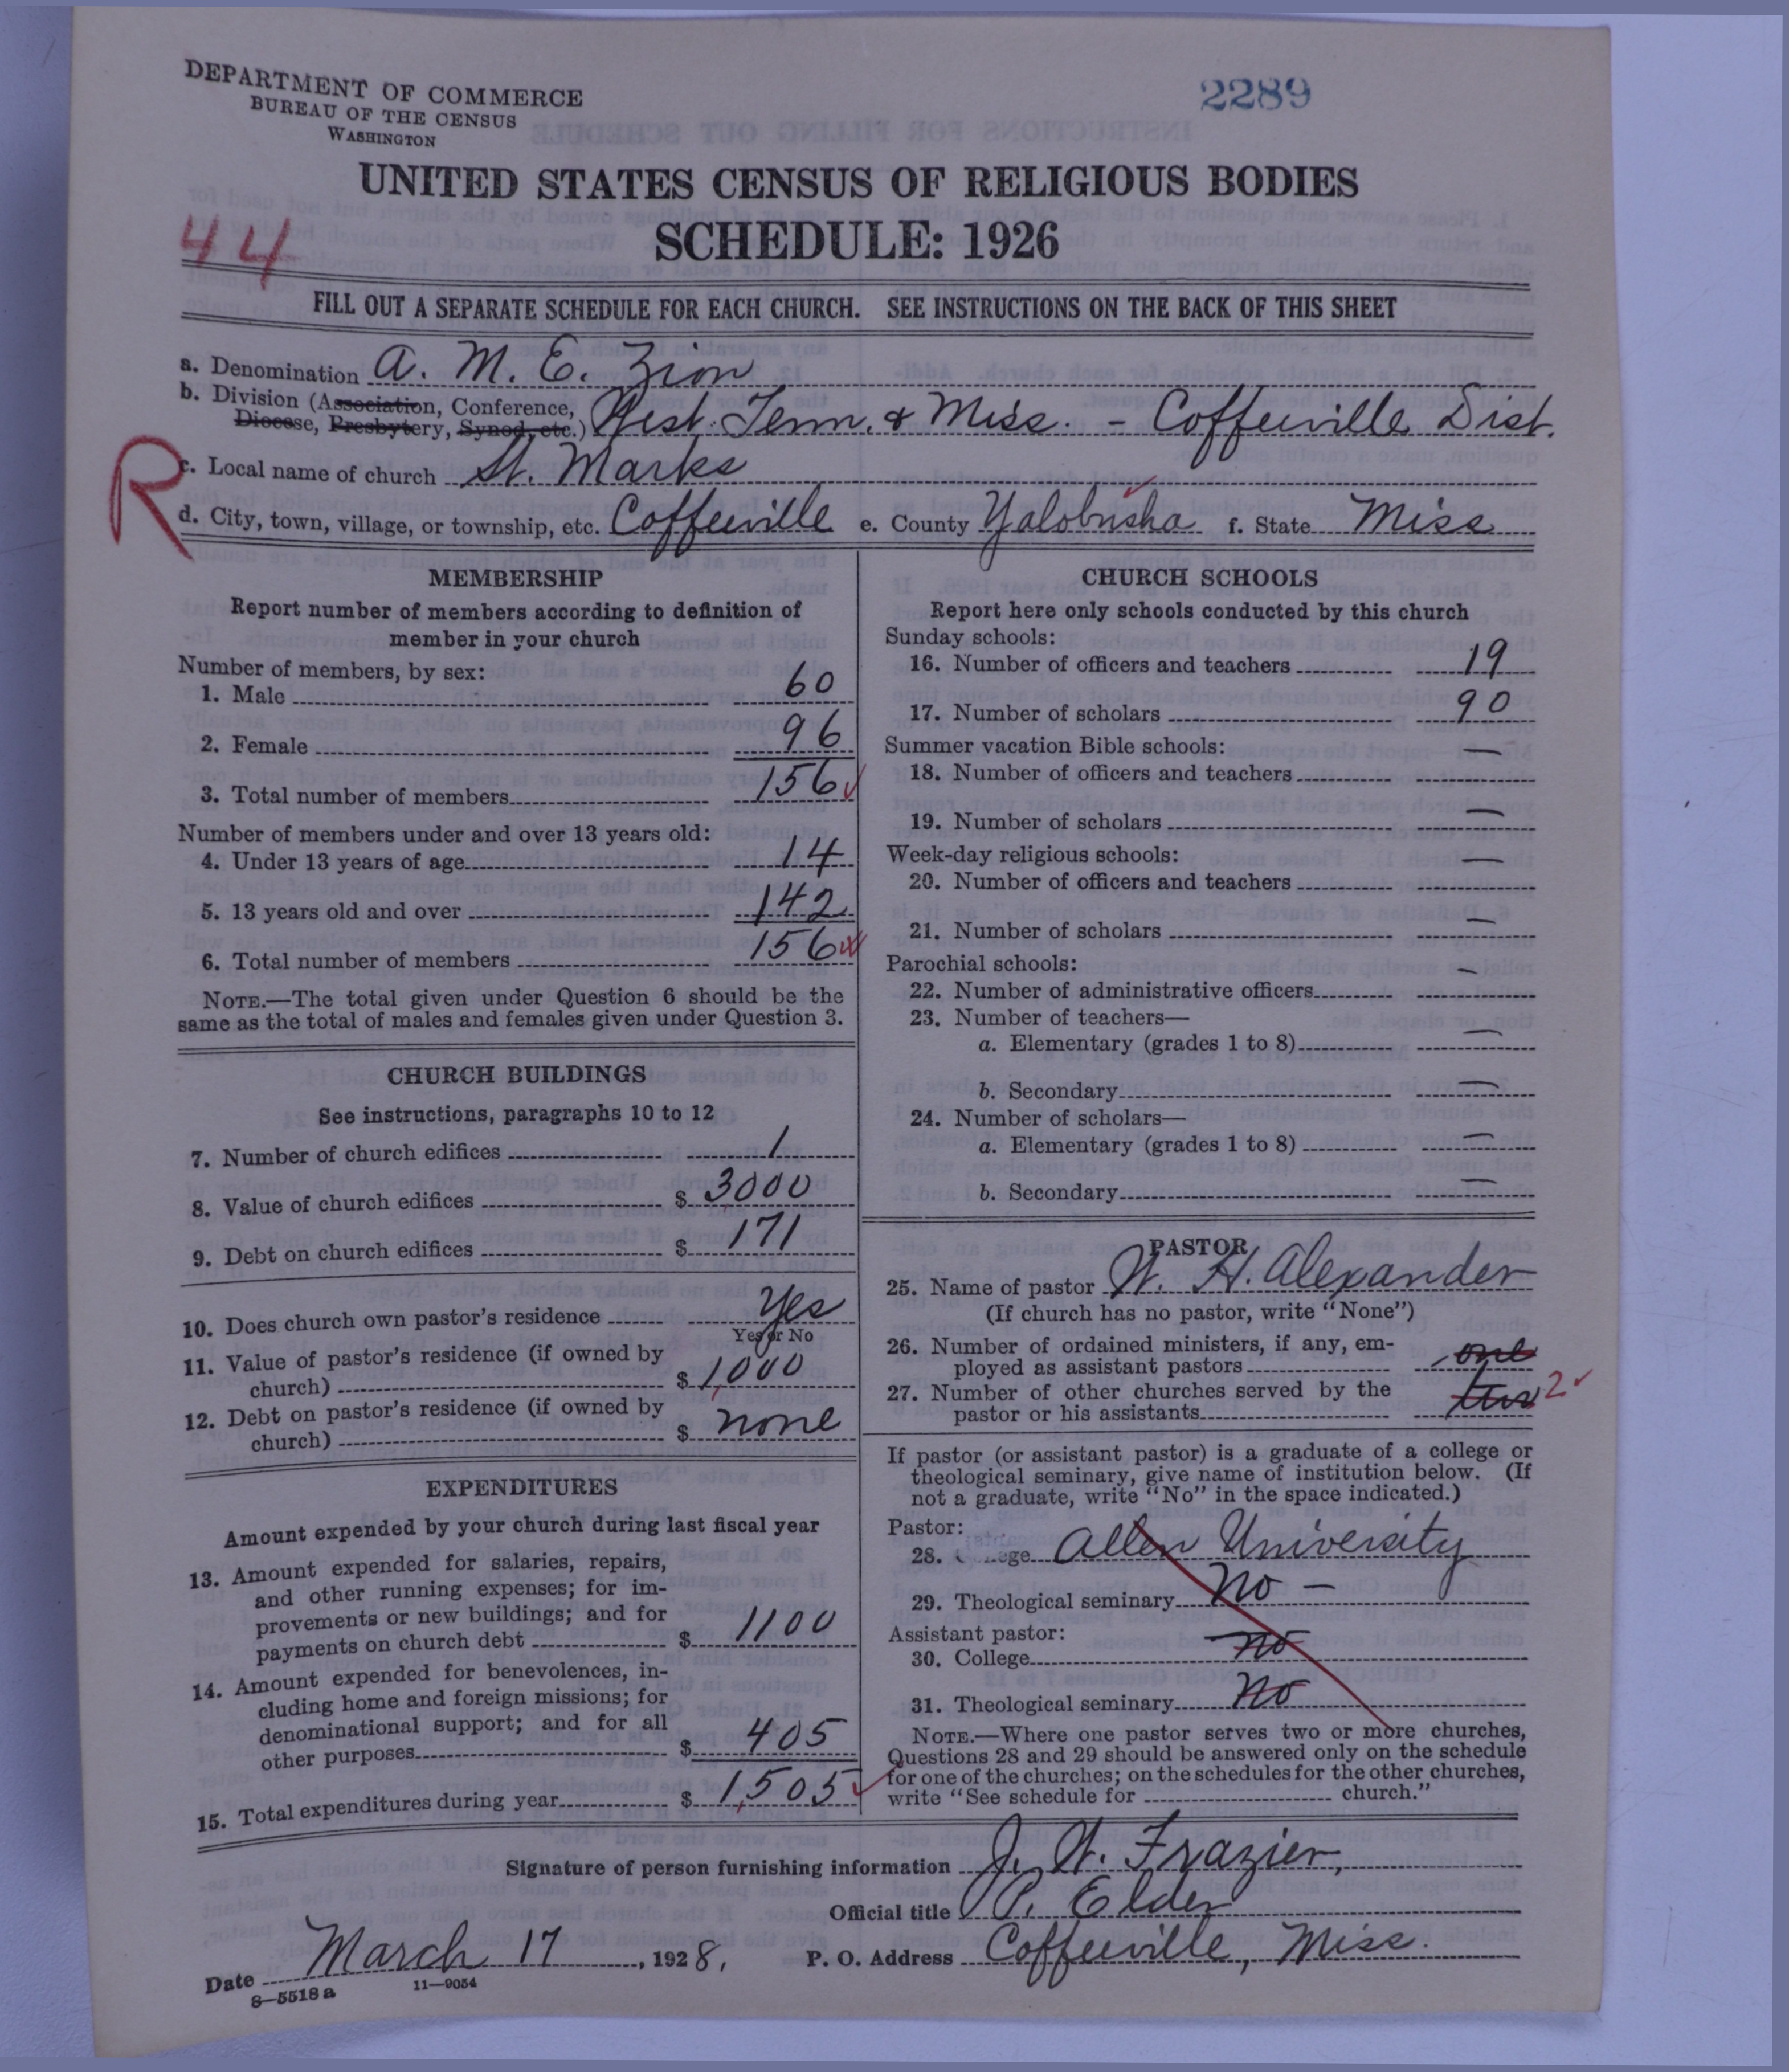 DEPARTMENT OF COMMERCE
BUREAU OF THE CENSUS
WASHINGTON
2289
UNITED STATES CENSUS OF RELIGIOUS BODIES
SCHEDULE: 1926
44
FILL OUT A SEPARATE SCHEDULE FOR EACH CHURCH. SEE INSTRUCTIONS ON THE BACK OF THIS SHEET
a. Denomination A. M. E. Zion
b. Division (Association, Conference, Diocese, Presbytery, Synod, etc.) West Tenn. & Miss. - Coffeeville Dist.
R
c. Local name of church St. Marks
d. City, town, village, or township, etc. Coffeeville e. County Yalobusha f. State Miss
MEMBERSHIP
Report number of members according to definition of
member in your church
Number of members, by sex:
1. Male 60
2. Female 96
3. Total number of members 156
Number of members under and over 13 years old:
4. Under 13 years of age 14
5. 13 years old and over 142
6. Total number of members 156
NOTE.—The total given under Question 6 should be the
same as the total of males and females given under Question 3.
CHURCH BUILDINGS
See instructions, paragraphs 10 to 12
7. Number of church edifices 1
8. Value of church edifices $ 3000
9. Debt on church edifices $ 171
10. Does church own pastor's residence Yes
Yes or No
11. Value of pastor's residence (if owned by
church) $ 1,000
12. Debt on pastor's residence (if owned by
church) $ none
EXPENDITURES
Amount expended by your church during last fiscal year
13. Amount expended for salaries, repairs,
and other running expenses; for im-
provements or new buildings; and for
payments on church debt $ 1100
14. Amount expended for benevolences, in-
cluding home and foreign missions; for
denominational support; and for all
other purposes $ 405
15. Total expenditures during year $ 1,505
CHURCH SCHOOLS
Report here only schools conducted by this church
Sunday schools:
16. Number of officers and teachers 19
17. Number of scholars 90
Summer vacation Bible schools: —
18. Number of officers and teachers
19. Number of scholars —
Week-day religious schools: —
20. Number of officers and teachers
21. Number of scholars —
Parochial schools: —
22. Number of administrative officers
23. Number of teachers—
a. Elementary (grades 1 to 8) —
b. Secondary —
24. Number of scholars—
a. Elementary (grades 1 to 8) —
b. Secondary —
PASTOR
25. Name of pastor W. H. Alexander
(If church has no pastor, write "None")
26. Number of ordained ministers, if any, em-
ployed as assistant pastors one
27. Number of other churches served by the
pastor or his assistants two 2
If pastor (or assistant pastor) is a graduate of a college or
theological seminary, give name of institution below. (If
not a graduate, write "No" in the space indicated.)
Pastor:
28. ege Allen University
29. Theological seminary No —
Assistant pastor:
30. College no
31. Theological seminary No
NOTE.—Where one pastor serves two or more churches,
Questions 28 and 29 should be answered only on the schedule
for one of the churches; on the schedules for the other churches,
write "See schedule for church."
Signature of person furnishing information J. W. Frazier,
Official title P. Elder
Date March 17, 1928, P. O. Address Coffeeville, Miss.
8—5518a 11—9054